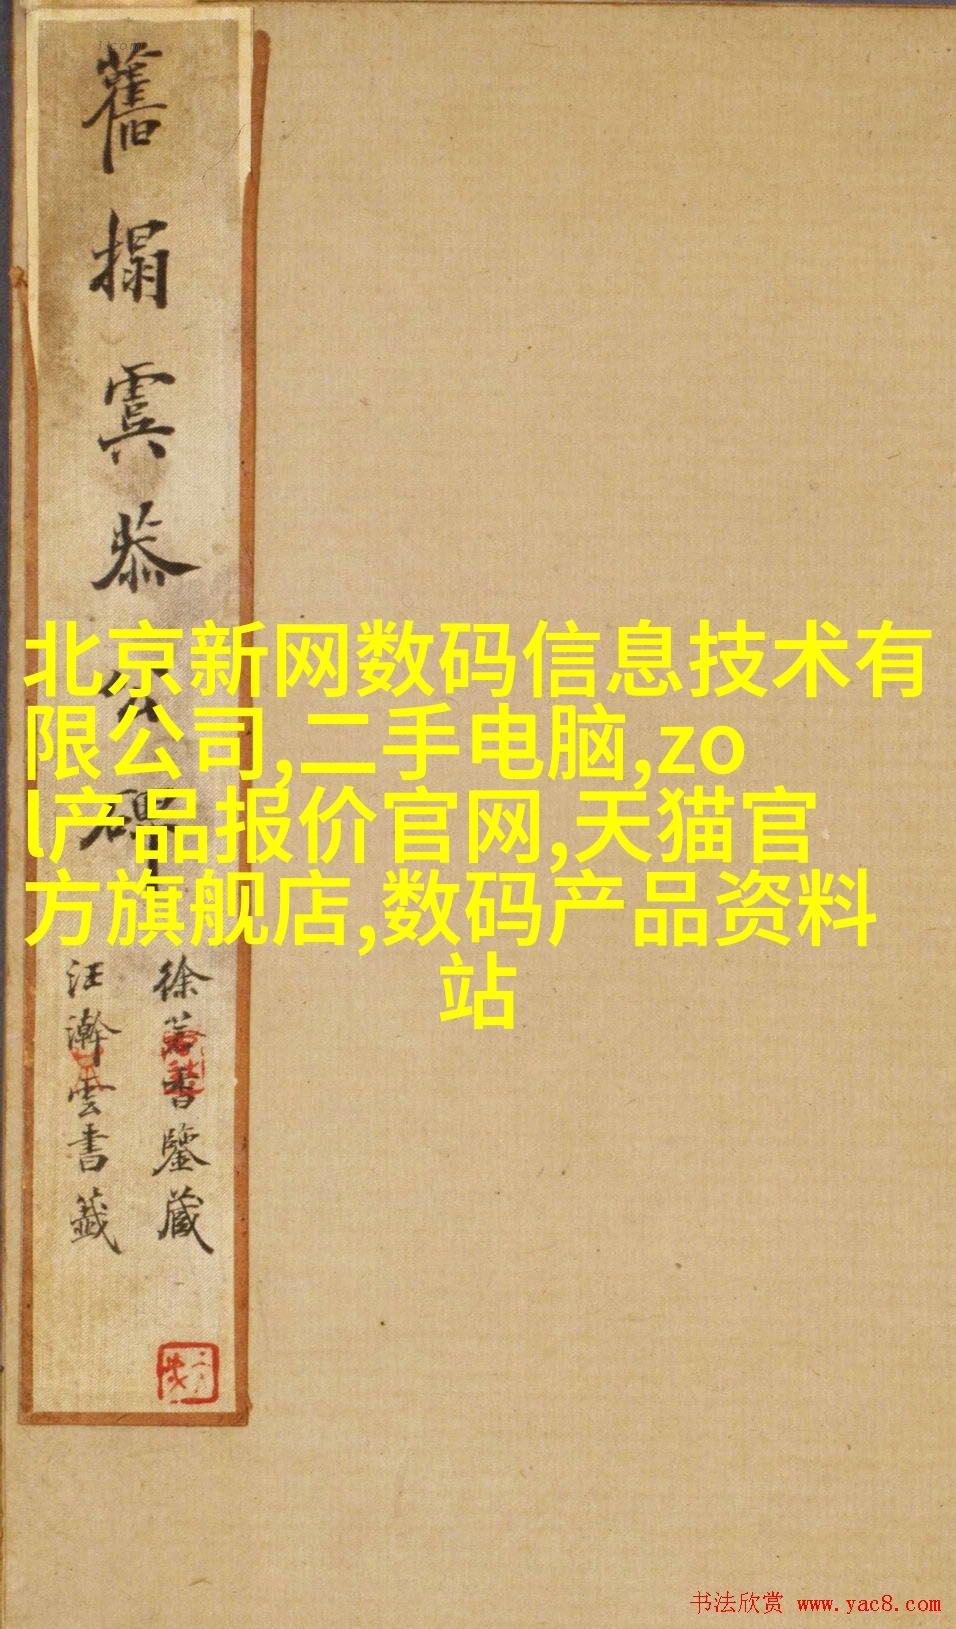 舊搨虞恭公碑
徐若書鑒藏
汪澣雲書籤
北京新网数码信息技术有
限公司,二手电脑,zo
l产品报价官网,天猫官
方旗舰店,数码产品资料
站
书法欣赏 www.yac8.com